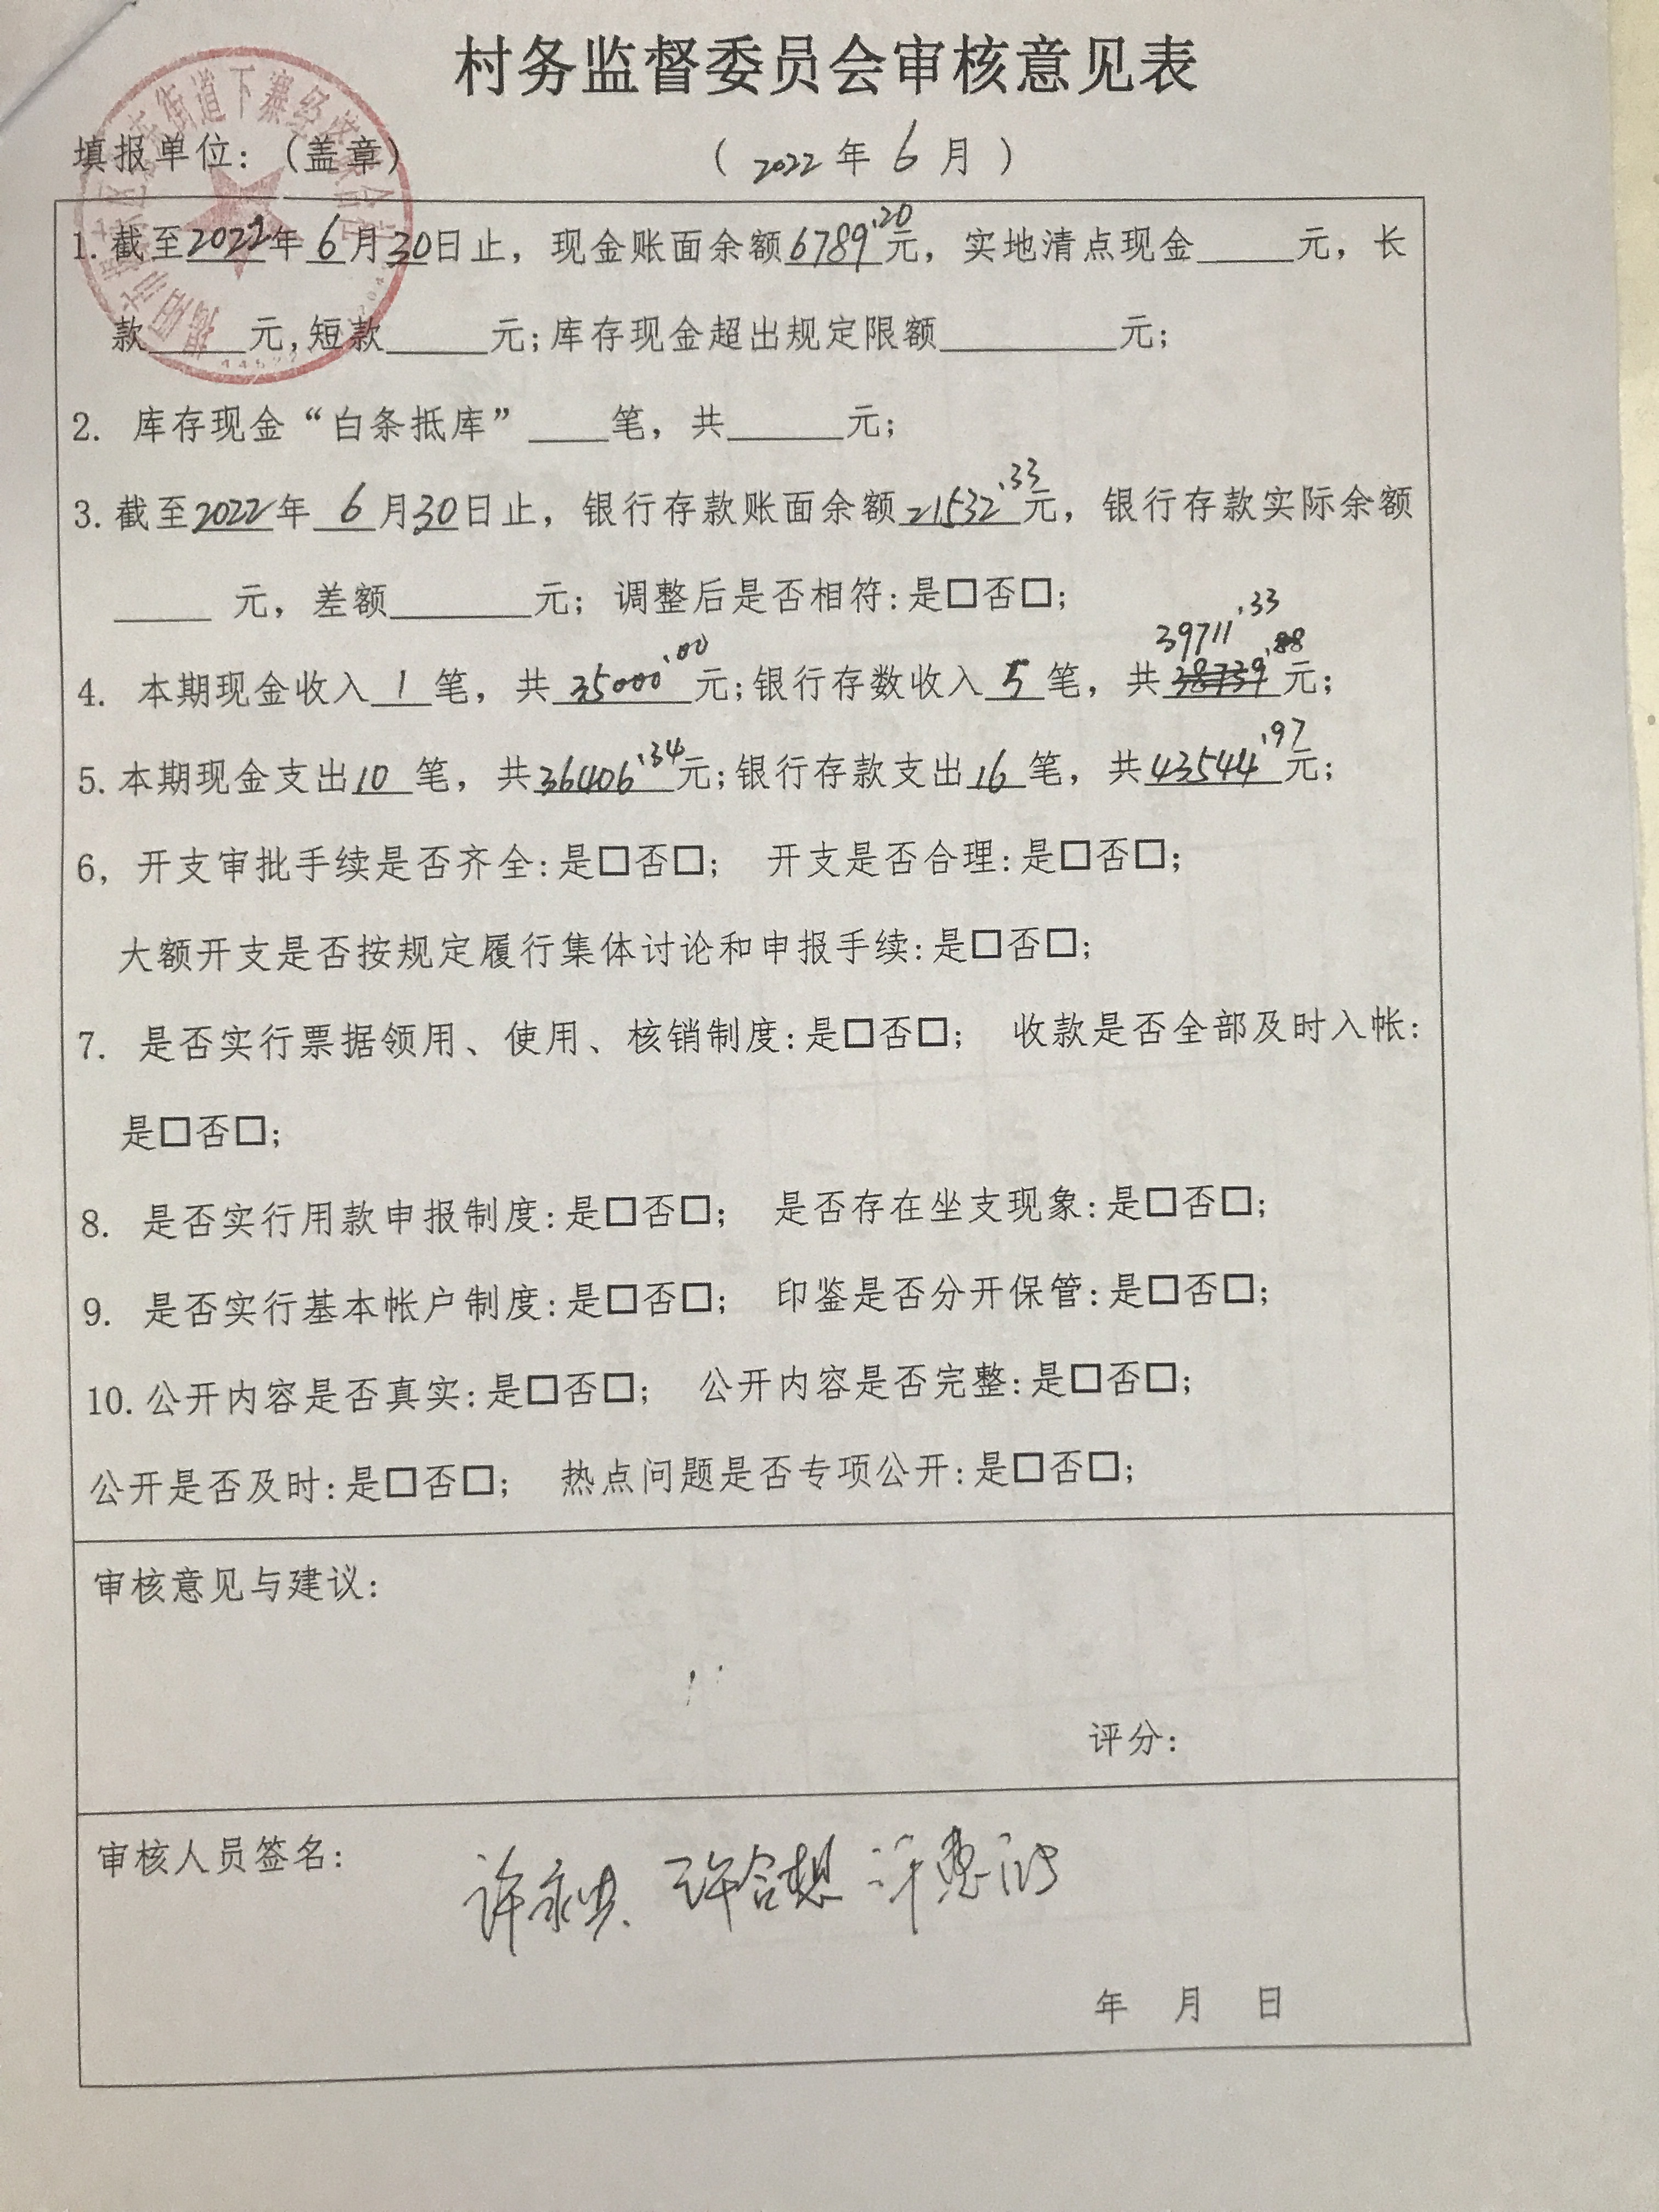 村务监督委员会审核意见表
填报单位：（盖章）
（2022年6月）
1.截至2022年6月30日止，现金账面余额6789.20元，实地清点现金_____元，长
款_____元,短款_____元;库存现金超出规定限额_________元;
2. 库存现金“白条抵库”____笔，共______元;
3.截至2022年6月30日止，银行存款账面余额21532.33元，银行存款实际余额
_____元，差额_______元; 调整后是否相符:是□否□;
39711.33
4. 本期现金收入1笔，共35000.00元;银行存数收入5笔，共元;
5.本期现金支出10笔，共36406.34元;银行存款支出16笔，共43544.97元;
6，开支审批手续是否齐全:是□否□; 开支是否合理:是□否□;
大额开支是否按规定履行集体讨论和申报手续:是□否□;
7. 是否实行票据领用、使用、核销制度:是□否□; 收款是否全部及时入帐:
是□否□;
8. 是否实行用款申报制度:是□否□; 是否存在坐支现象:是□否□;
9. 是否实行基本帐户制度:是□否□; 印鉴是否分开保管:是□否□;
10.公开内容是否真实:是□否□; 公开内容是否完整:是□否□;
公开是否及时:是□否□; 热点问题是否专项公开:是□否□;
审核意见与建议:
评分:
审核人员签名:
许合想
年 月 日